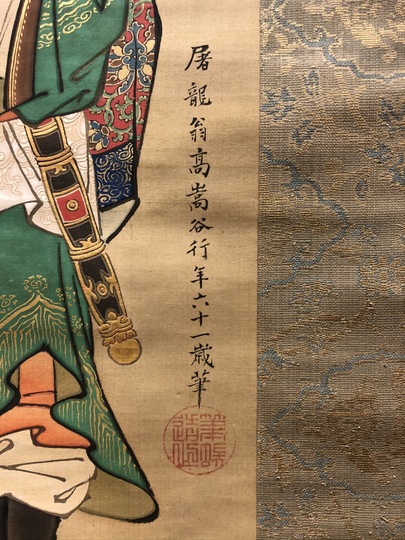 屠龍翁高嵩谷行年六十一歳筆